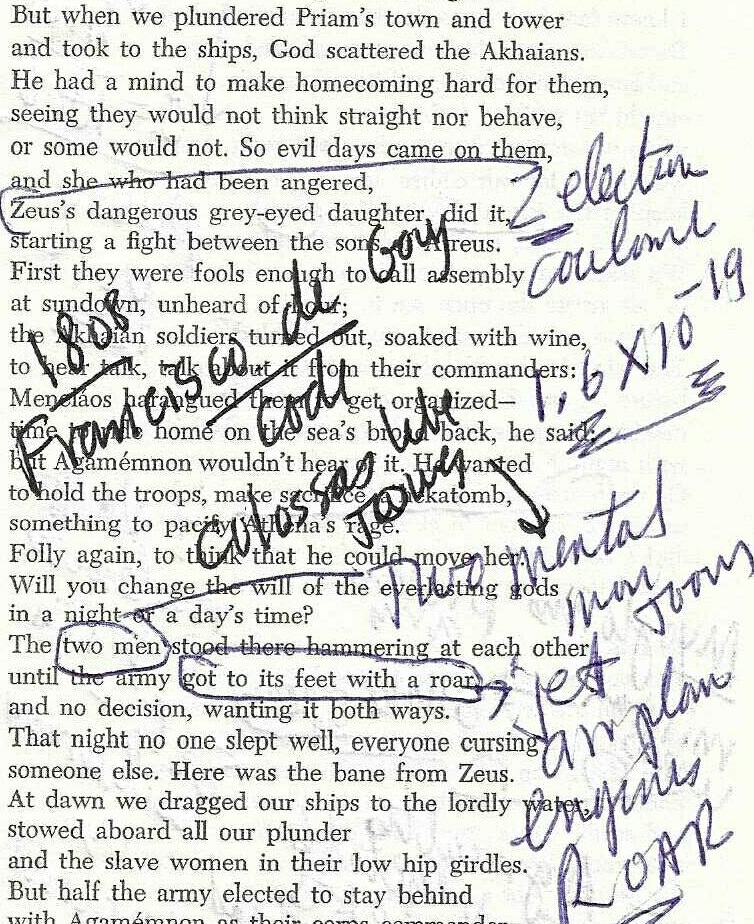 But when we plundered Priam's town and tower
and took to the ships, God scattered the Akhaians.
He had a mind to make homecoming hard for them,
seeing they would not think straight nor behave,
or some would not. So evil days came on them,
and she who had been angered,
Zeus's dangerous grey-eyed daughter, did it,
starting a fight between the sons of Atreus.
First they were fools enough to call assembly
at sundown, unheard of hour;
the Akhaian soldiers turned out, soaked with wine,
to hear talk, talk about it from their commanders:
Meneláos harangued them to get organized—
time to ride home on the sea's broad back, he said;
but Agamémnon wouldn't hear of it. He wanted
to hold the troops, make sacrifice, a hekatomb,
something to pacify Athena's rage.
Folly again, to think that he could move her.
Will you change the will of the everlasting gods
in a night or a day's time?
The two men stood there hammering at each other
until the army got to its feet with a roar,
and no decision, wanting it both ways.
That night no one slept well, everyone cursing
someone else. Here was the bane from Zeus.
At dawn we dragged our ships to the lordly water,
stowed aboard all our plunder
and the slave women in their low hip girdles.
But half the army elected to stay behind
with Agamémnon as their corps commander
Z electron
Coulomb
1,6 X 10-19
1808
Francisco de Goy
Code
Colossas
Two mental
men
jet
engins
ROAR